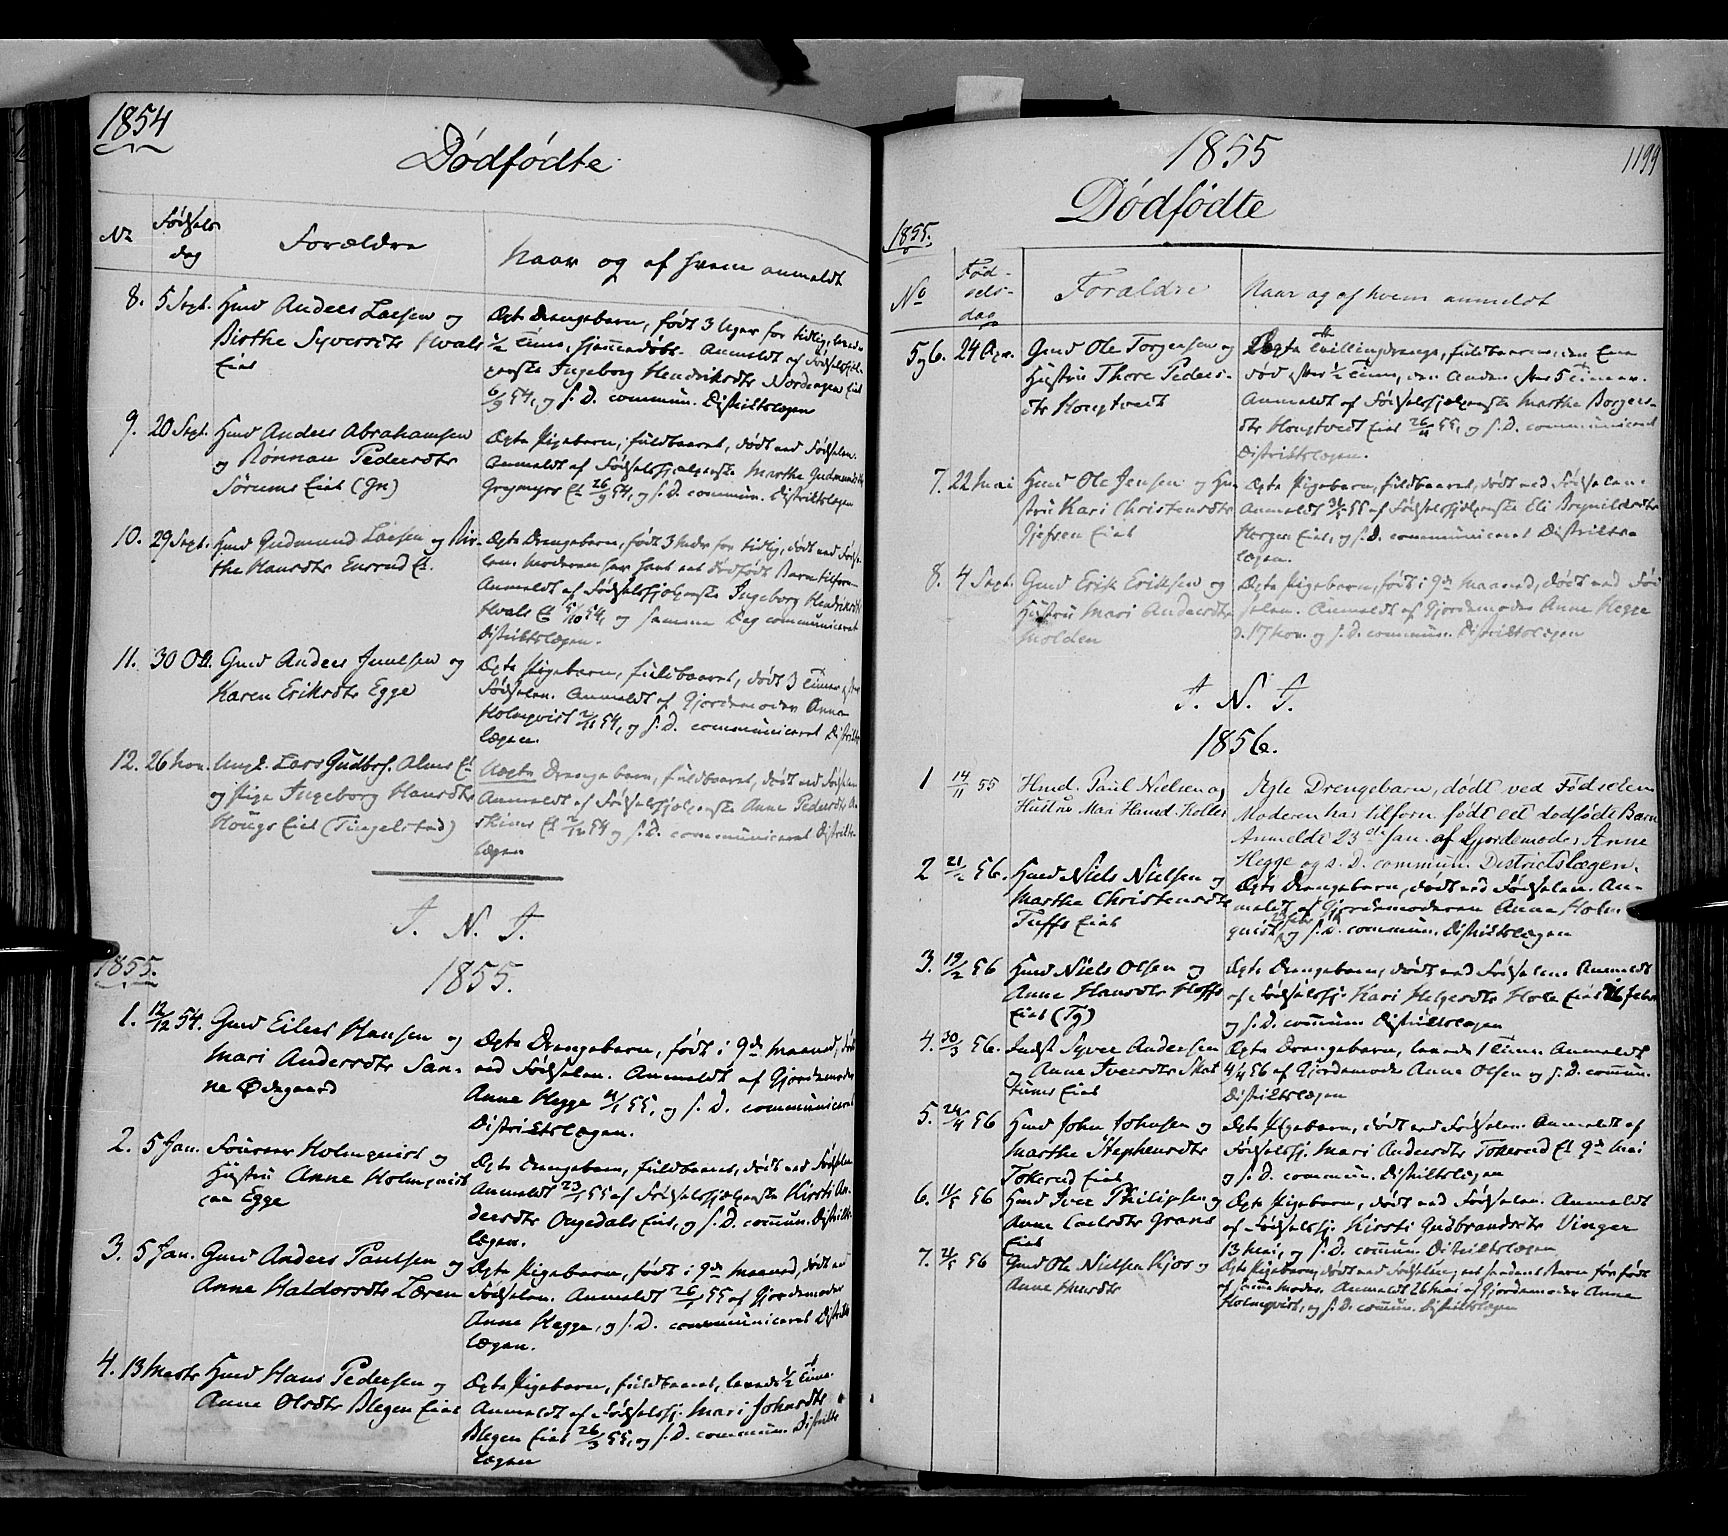 1854
Dødfødte
No Fødsels dag Forældre Naar og af hvem anmeldt
8. 5 Sept. Hmd Anders Larsen og
Birthe Syversdtr Hvals
Eiet
Ægte Drengebarn, født 3 Uger for tidlig, levede
½ Time, hjemmedøbt. Anmeldt af Fødselshjæl-
perske Ingeborg Hendriksdtr Nordengen Eiet
6/9 54, og s. D. commun. Distriktslægen
9. 20 Sept. Hmd Anders Abrahamsen
og Rønnau Pedersdtr
Sørums Eiet (Gn)
Ægte Pigebarn, fuldbaaret, dødt ved Fødselen.
Anmeldt af Fødselshjælperske Marthe Gudmundsdtr
Grymyrs Et 26/9 54, og s. D. commun. Distriktslægen
10. 29 Sept. Hmd Gudmund Larsen og Bir-
the Hansdtr Enrud Et.
Ægte Drengebarn, født 3 Uger for tidlig, dødt ved Fødse-
len. Moderen har havt eet dødfødt Barn tilforn.
Anmeldt af Fødselshjælperske Ingeborg Hendriksdtr
Hvals Et 5/10 54, og samme Dag communiceret
Distriktslægen.
11. 30 Oct. Gmd Anders Juulsen og
Karen Eriksdtr Egge
Ægte Pigebarn, fuldbaaret, dødt 3 Timer efter
Fødselen. Anmeldt af Gjordemoder Anne
Holmqvist 2/11 54, og s. D. communiceret Distrikts-
lægen.
12. 26 Nov. Ungk. Lars Gudbrs. Alms Et
og Pige Ingeborg Hansdtr
Hougs Eiet (Tingelstad)
Uægte Drengebarn, fuldbaaret, dødt ved Fødselen
Anmeldt af Fødselshjælperske Anne Pedersdtr A-
skims Et 2/12 54 og s. D. communiceret Distrikts-
lægen
J. N. J.
1855.
1855.
1. 12/12 54. Gmd Eilert Hansen og
Mari Andersdtr San-
ne Ødegaard
Ægte Drengebarn, født i 9de Maaned, dødt
ved Fødselen. Anmeldt af Gjordemoder
Anne Hegge 4/1 55, og s. D. communiceret
Distriktslægen.
2. 5 Jan. Foureer Holmqvist og
Hustru Anne Holmqvist
Egge
Ægte Drengebarn, fuldbaaret, dødt ved Fødselen
Anmeldt 23/1 55 af Fødselshjælperske Kirsti An-
dersdtr Ongedals Eiet, og s. D. commun. Distrikts-
lægen.
3. 5 Jan. Gmd Anders Paulsen og
Anne Haldorsdtr Løren
Ægte Pigebarn, født i 9de Maaned, dødt ved
Fødselen. Anmeldt 26/1 55 af Gjordemoder
Anne Hegge, og s. D. communiceret Distrikts-
lægen.
4. 13 Marts Hmd Hans Pedersen og
Anne Olsdtr Blegen Eiet
Ægte Pigebarn, fuldbaaret, levede ½ Time.
Anmeldt af Fødselshj. Mari Johansdtr
Blegen Eiet 26/3 55, og s. D. commun. Distrikts-
lægen
1855
1199
Dødfødte
1855.
No Fød- sels- dag Forældre Naar og af hvem anmeldt
5 og 6. 24 Apr. Gmd Ole Torgersen og
Hustru Thore Peders-
dtr Hongtvedt
Ægte Tvillingdrenge, fuldbaarne, den Ene
død efter ½ Time, den Anden efter 5 Timer.
Anmeldt af Fødselshjælperske Marthe Borgers-
dtr Hongtvedt Eiet 26/4 55, og s. D. communiceret
Distriktslægen.
7. 22 Mai Hmd Ole Jensen og Hu-
stru Kari Christensdtr
Gjefsen Eiet
Ægte Pigebarn, fuldbaaret, dødt ved Fødselen.
Anmeldt 31/5 55 af Fødselshjælperske Eli Brynildsdtr
Horgen Eiet, og s. D. communiceret Distrikts-
lægen.
8. 4 Sept. Gmd Erik Eriksen og
Hustru Mari Andersdtr
Molden
Ægte Pigebarn, født i 9de Maaned, dødt ved Fød-
selen. Anmeldt af Gjordemoder Anne Hegge
d. 17 Nov. og s. D. commun. Distriktslægen
J. N. J.
1856.
1 14/11 55 Hmd. Paul Nielsen og
Hustru Mari Hansd Koller
Ægte Drengebarn, dødt ved Fødselen
Moderen har tilforn født eet dødfødt Barn
Anmeldt 23de Jan. af Gjordemoder Anne
Hegge og s. D. commun. Districtslægen.
2 21/2 56. Hmd Niels Nielsen og
Marthe Christensdtr
Tuffs Eiet
Ægte Drengebarn, dødt ved Fødselen. An-
meldt af Gjordemoderen Anne Holm-
qvist, og s. D. commun. Distriktslægen
3. 19/2 56 Hmd Niels Olsen og
Anne Hansdtr Hoffs
Eiet (Tg)
Ægte Drengebarn, dødt ved Fødselen Anmeldt
af Fødselshj. Kari Helgesdtr Hole Eiet 26 Febr
og s. D. commun. Distriktslægen
4. 30/3 56. Indst Syver Andersen
og Anne Iversdtr Skat
tums Eiet
Ægte Drengebarn, levede 1 Time. Anmeldt
4/4 56 af Gjordemoder Anne Olsen og s. D. commun.
Distriktslægen
5. 24/4 56 Hmd John Johnsen og
Marthe Stephensdtr
Tokerud Eiet
Ægte Pigebarn, dødt ved Fødselen. Anmeldt af
Fødselshj. Mari Andersdtr Tokerud Et 9de Mai
og s. D. commun. Distriktslægen
6. 11/5 56 Hmd Iver Philipsen og
Anne Carlsdtr Grans
Eiet
Ægte Pigebarn, dødt ved Fødselen. Anmeldt
af Fødselshj. Kirsti Gudbrandsdtr Vinger
13 Mai, og s. D. commun. Distriktslægen
7. 21/5 56 Gmd Ole Nielsen Kjos og
Anne Hansdtr
Ægte Pigebarn, dødt ved Fødselen, et saadant Barn før født
af samme Moder. Anmeldt 26 Mai af Gjordemoder Anne
Holmqvist, og s. D. commun. Distriktslægen